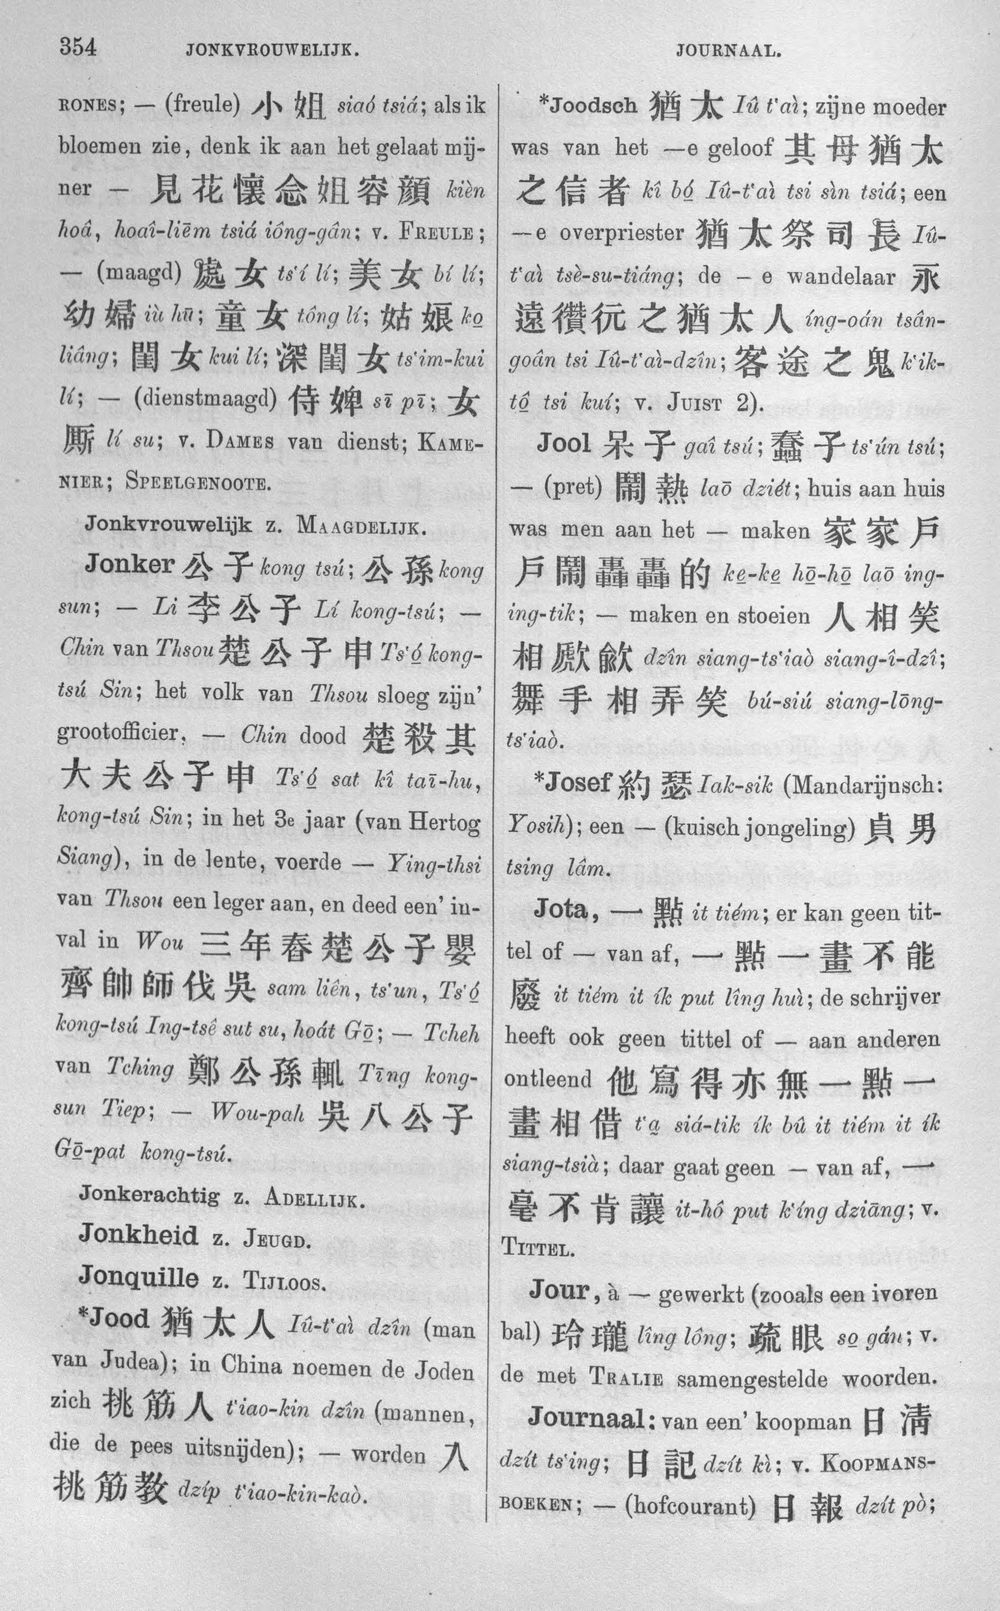 354 JONKVROUWELIJK. JOURNAAL.
RONES; — (freule) 小姐 siaó tsiá; als ik
bloemen zie, denk ik aan het gelaat mij-
ner — 見花懷念姐容顔 kièn
hoâ, hoaî-liēm tsiá iông-gân; v. FREULE;
— (maagd) 處女 ts‘í lí; 美女 bí lí;
幼婦 iù hū; 童女 tông lí; 姑娘 ko̱
liâng; 閨女 kui lí; 深閨女 ts‘im-kui
lí; — (dienstmaagd) 侍婢 sī pī; 女
厮 lí su; v. DAMES van dienst; KAME-
NIER; SPEELGENOOTE.
Jonkvrouwelijk z. MAAGDELIJK.
Jonker 公子 kong tsú; 公孫 kong
sun; — Li 李公子 Lí kong-tsú; —
Chin van Thsou 楚公子申 Ts‘ó̱ kong-
tsú Sin; het volk van Thsou sloeg zijn’
grootofficier, — Chin dood 楚殺其
大夫公子申 Ts‘ó̱ sat kî taī-hu,
kong-tsú Sin; in het 3e jaar (van Hertog
Siang), in de lente, voerde — Ying-thsi
van Thsou een leger aan, en deed een’ in-
val in Wou 三年春楚公子嬰
齊帥師伐吳 sam liên, ts‘un, Ts‘ó̱
kong-tsú Ing-tsê sut su, hoát Gō̱; — Tcheh
van Tching 鄭公孫輒 Tīng kong-
sun Tiep; — Wou-pah 吳八公子
Gō̱-pat kong-tsú.
Jonkerachtig z. ADELLIJK.
Jonkheid z. JEUGD.
Jonquille z. TIJLOOS.
*Jood 猶太人 Iû-t‘aì dzîn (man
van Judea); in China noemen de Joden
zich 挑筋人 t‘iao-kin dzîn (mannen,
die de pees uitsnijden); — worden 入
挑筋教 dzíp t‘iao-kin-kaò.
*Joodsch 猶太 Iû t‘aì; zijne moeder
was van het —e geloof 其母猶太
之信者 kî bó̱ Iû-t‘aì tsi sìn tsiá; een
—e overpriester 猶太祭司長 Iû-
t‘aì tsè-su-tiáng; de —e wandelaar 永
遠儹沅之猶太人 íng-oán tsân-
goân tsi Iû-t‘aì-dzîn; 客途之鬼 k‘ik-
tô̱ tsi kuí; v. JUIST 2).
Jool 呆子 gaî tsú; 蠢子 ts‘ún tsú;
— (pret) 鬧熱 laō dziét; huis aan huis
was men aan het — maken 家家戶
戶鬧轟轟的 ke̱-ke̱ hō̱-hō̱ laō ing-
ing-tik; — maken en stoeien 人相笑
相歋歈 dzîn siang-ts‘iaò siang-î-dzî;
舞手相弄笑 bú-siú siang-lōng-
ts‘iaò.
*Josef 約瑟 Iak-sik (Mandarijnsch:
Yosih); een — (kuisch jongeling) 貞男
tsing lâm.
Jota, 一點 it tiém; er kan geen tit-
tel of — van af, 一點一畫不能
廢 it tiém it ík put lîng huì; de schrijver
heeft ook geen tittel of — aan anderen
ontleend 他寫得亦無一點一
畫相借 t‘a̱ siá-tik ík bû it tiém it ík
siang-tsià; daar gaat geen — van af, 一
毫不肯讓 it-hô put k‘íng dziāng; v.
TITTEL.
Jour, à — gewerkt (zooals een ivoren
bal) 玲瓏 lîng lông; 疏眼 so̱ gán; v.
de met TRALIE samengestelde woorden.
Journaal: van een’ koopman 日清
dzít ts‘ing; 日記 dzít kì; v. KOOPMANS-
BOEKEN; — (hofcourant) 日報 dzít pò;